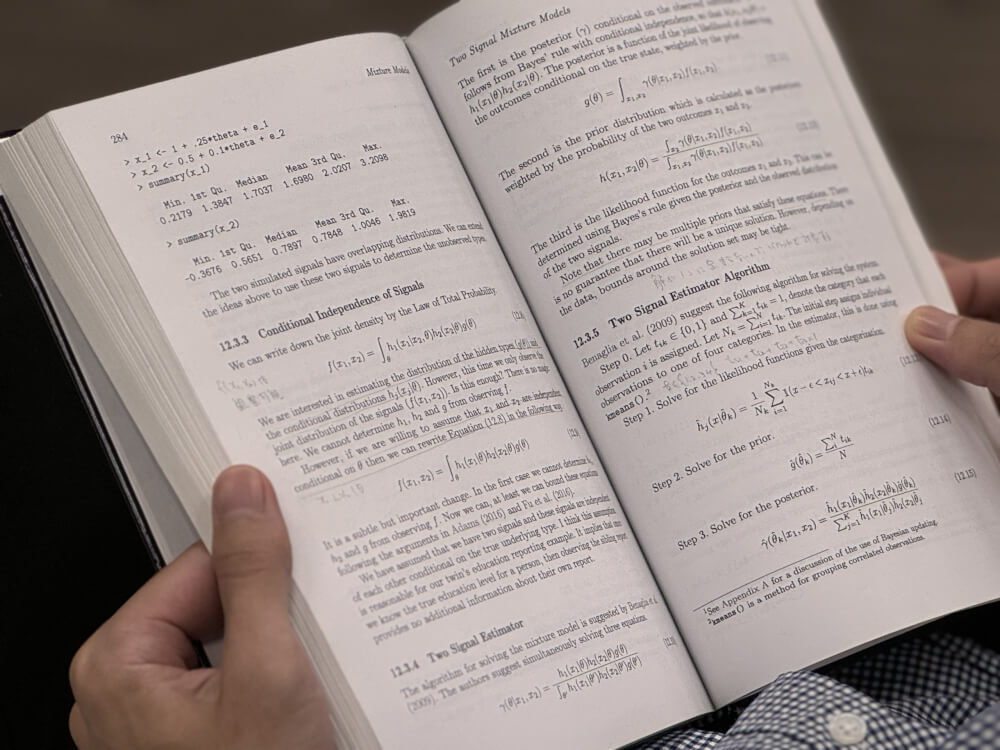 284
Mixture Models
> x_1 <- 1 + .25*theta + e_1
> x_2 <- 0.5 + 0.1*theta + e_2
> summary(x_1)
Min. 1st Qu. Median Mean 3rd Qu. Max.
0.2179 1.3847 1.7037 1.6980 2.0207 3.2098
> summary(x_2)
Min. 1st Qu. Median Mean 3rd Qu. Max.
-0.3676 0.5651 0.7897 0.7848 1.0046 1.9819
The two simulated signals have overlapping distributions. We can extend
ideas above to use these two signals to determine the unobserved types.
12.3.3 Conditional Independence of Signals
We can write down the joint density by the Law of Total Probability.
f(x₁, x₂) = ∫_θ h₁(x₁|x₂, θ)h₂(x₂|θ)g(θ)
We are interested in estimating the distribution of the hidden types (g(θ)) and
the conditional distributions h_j(x_j|θ). However, this time we only observe the
joint distribution of the signals (f(x₁, x₂)). Is this enough? There is no magic
here. We cannot determine h₁, h₂ and g from observing f.
However, if we are willing to assume that x₁ and x₂ are independent
conditional on θ then we can rewrite Equation (12.8) in the following way.
f(x₁, x₂) = ∫_θ h₁(x₁|θ)h₂(x₂|θ)g(θ)
It is a subtle but important change. In the first case we cannot determine h₁,
h₂ and g from observing f. Now we can, at least we can bound these
following the arguments in Adams (2016) and Fu et al. (2016).
We have assumed that we have two signals and these signals are independent
of each other conditional on the true underlying type. I think this assumption
is reasonable for our twin's education reporting example. It implies that once
we know the true education level for a person, then observing the sibling report
provides no additional information about their own report.
12.3.4 Two Signal Estimator
The algorithm for solving the mixture model is suggested by Benaglia et al.
(2009). The authors suggest simultaneously solving three equations.
γ(θ|x₁, x₂) = h₁(x₁|θ)h₂(x₂|θ)g(θ) / ∫_θ' h₁(x₁|θ')h₂(x₂|θ')g(θ')
Two Signal Mixture Models
The first is the posterior (γ) conditional on the observed
follows from Bayes' rule with conditional independence, so that
h₁(x₁|θ)h₂(x₂|θ). The posterior is a function of the joint likelihood of observing
the outcomes conditional on the true state, weighted by the prior.
g(θ) = ∫_x₁,x₂ γ(θ|x₁, x₂)f(x₁, x₂)
The second is the prior distribution which is calculated as the posterior
weighted by the probability of the two outcomes x₁ and x₂.
h(x₁, x₂|θ) = ∫_x₂ γ(θ|x₁, x₂)f(x₁, x₂) / ∫_x₁,x₂ γ(θ|x₁, x₂)f(x₁, x₂)
The third is the likelihood function for the outcomes x₁ and x₂. This can be
determined using Bayes's rule given the posterior and the observed distribution
of the two signals.
Note that there may be multiple priors that satisfy these equations. There
is no guarantee that there will be a unique solution. However, depending on
the data, bounds around the solution set may be tight.
12.3.5 Two Signal Estimator Algorithm
Benaglia et al. (2009) suggest the following algorithm for solving the system.
Step 0. Let t_ik ∈ {0, 1} and ∑_{k=1}^K t_ik = 1, denote the category that each
observation i is assigned. Let N_k = ∑_{i=1}^N t_ik. The initial step assigns individual
observations to one of four categories. In the estimator, this is done using
kmeans().²
Step 1. Solve for the likelihood functions given the categorization.
Step 2. Solve for the prior.
ĝ(θ̂_k) = ∑_i^N t_ik / N
(12.14)
Step 3. Solve for the posterior.
γ̂(θ̂_k|x₁, x₂) = ĥ₁(x₁|θ̂_k)ĥ₂(x₂|θ̂_k)ĝ(θ̂_k) / ∑_{j=1}^K ĥ₁(x₁|θ̂_j)ĥ₂(x₂|θ̂_j
(12.15)
¹See Appendix A for a discussion of the use of Bayesian updating.
²kmeans() is a method for grouping correlated observations.